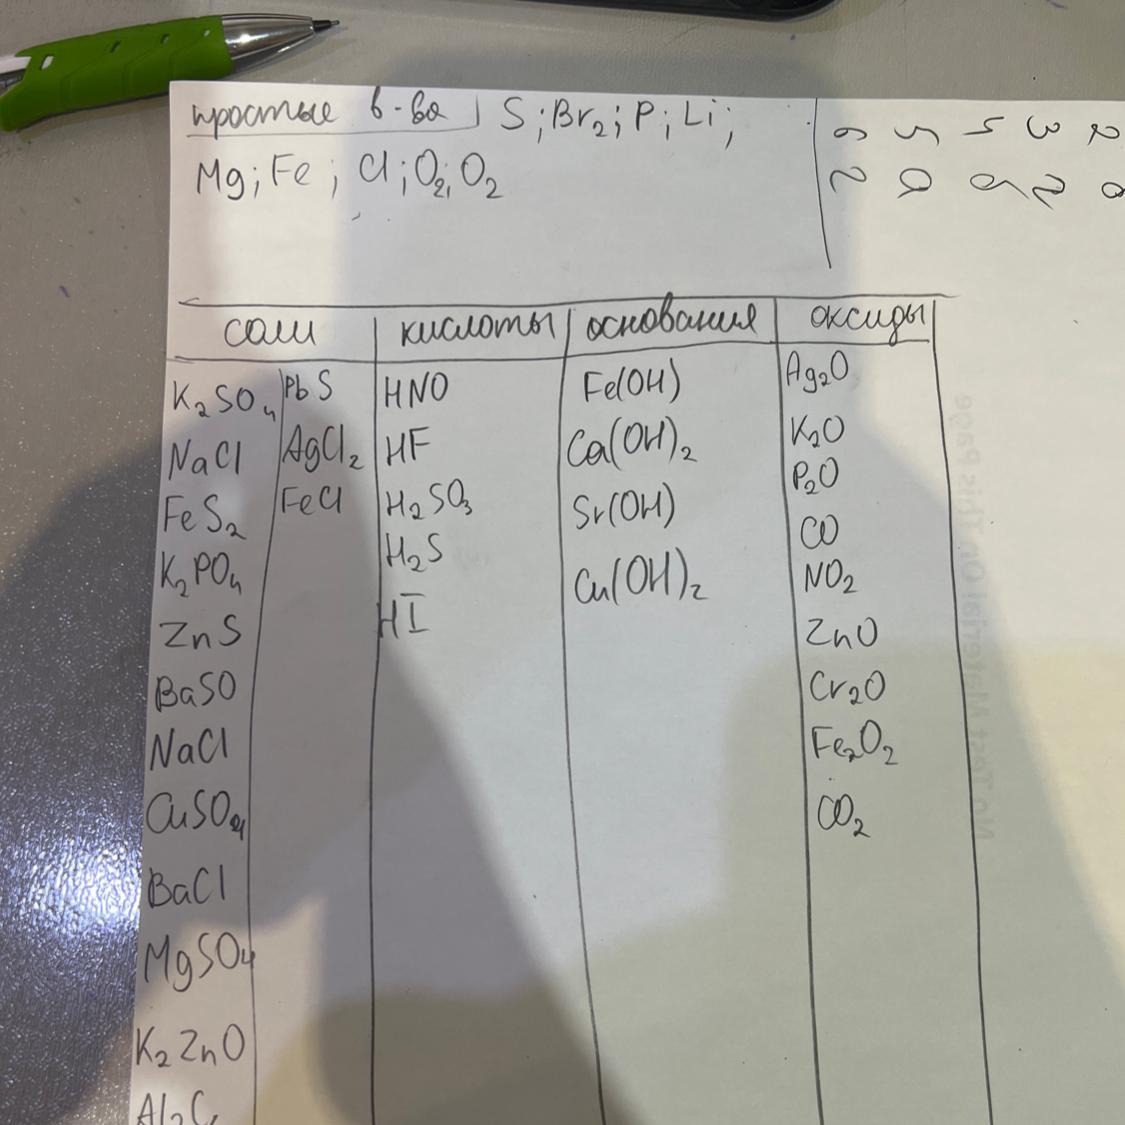 простые в-ва S; Br2; P; Li;
Mg; Fe; Cl; O2, O2
6 5 5 3 2
2 a
соли кислоты основания оксиды
K2SO4 PbS HNO Fe(OH) Ag2O
NaCl AgCl2 HF Ca(OH)2 K2O
FeS2 FeCl H2SO3 Sr(OH) P2O
K2PO4 H2S Cu(OH)2 CO
ZnS HI NO2
BaSO ZnO
NaCl Cr2O
CuSO4 Fe2O2
BaCl CO2
MgSO4
K2ZnO
No Test Material On This Page